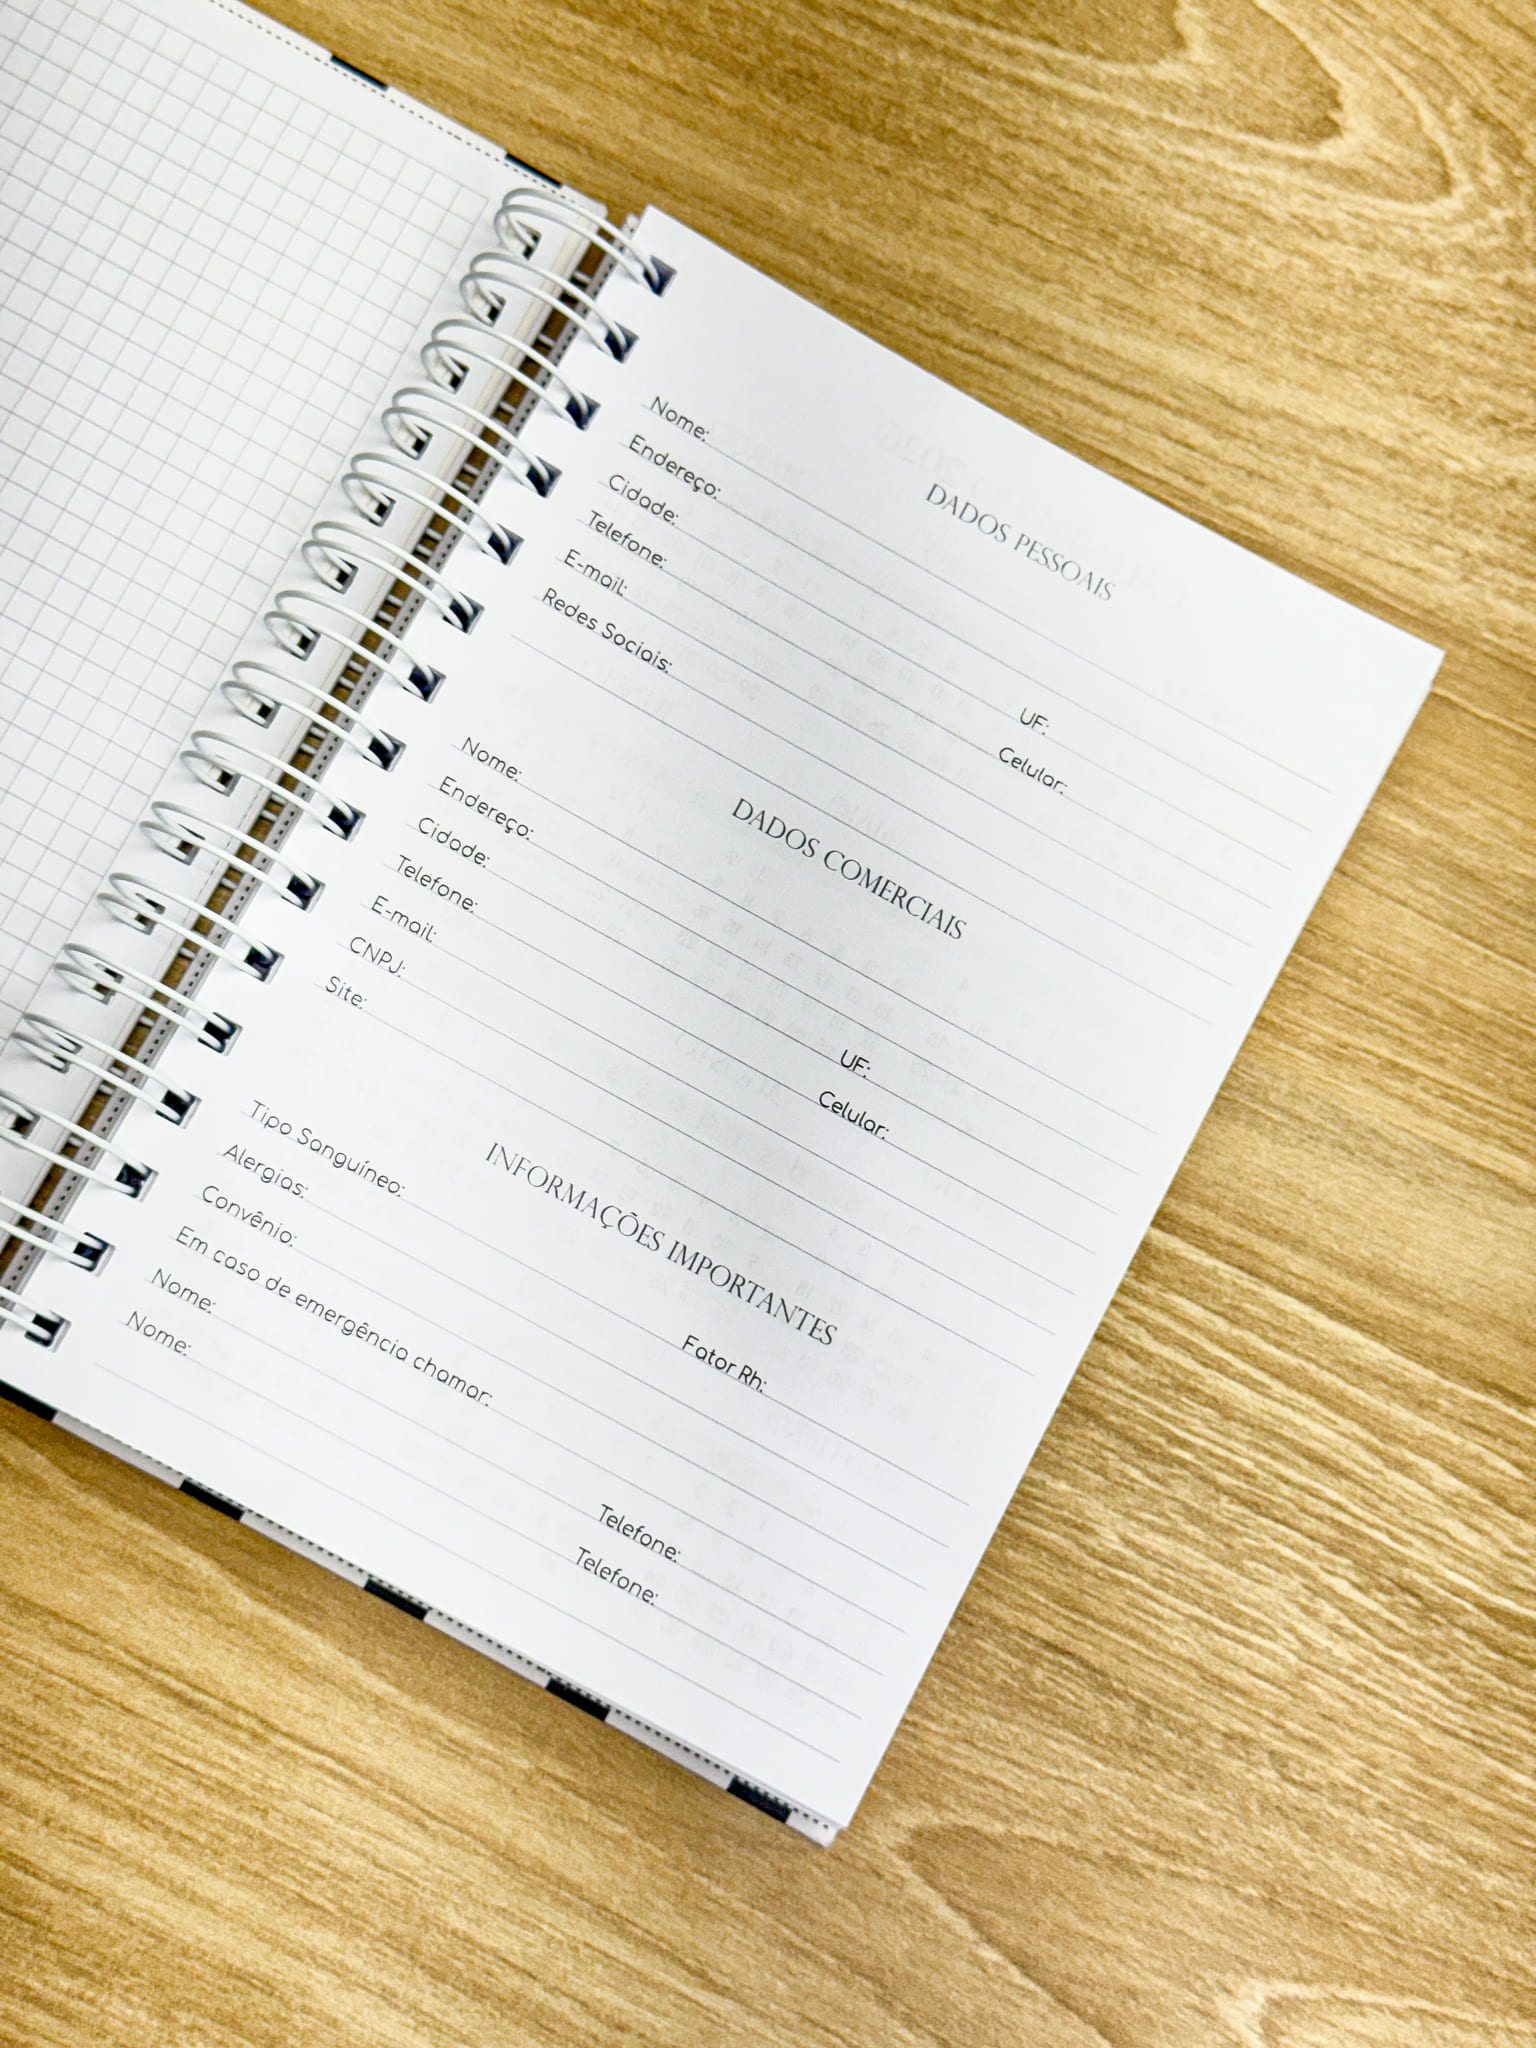 DADOS PESSOAIS
Nome:
Endereço:
Cidade: UF:
Telefone: Celular:
E-mail:
Redes Sociais:
DADOS COMERCIAIS
Nome:
Endereço:
Cidade: UF:
Telefone: Celular:
E-mail:
CNPJ:
Site:
INFORMAÇÕES IMPORTANTES
Tipo Sanguíneo: Fator Rh:
Alergias:
Convênio:
Em caso de emergência chamar:
Nome: Telefone:
Nome: Telefone: